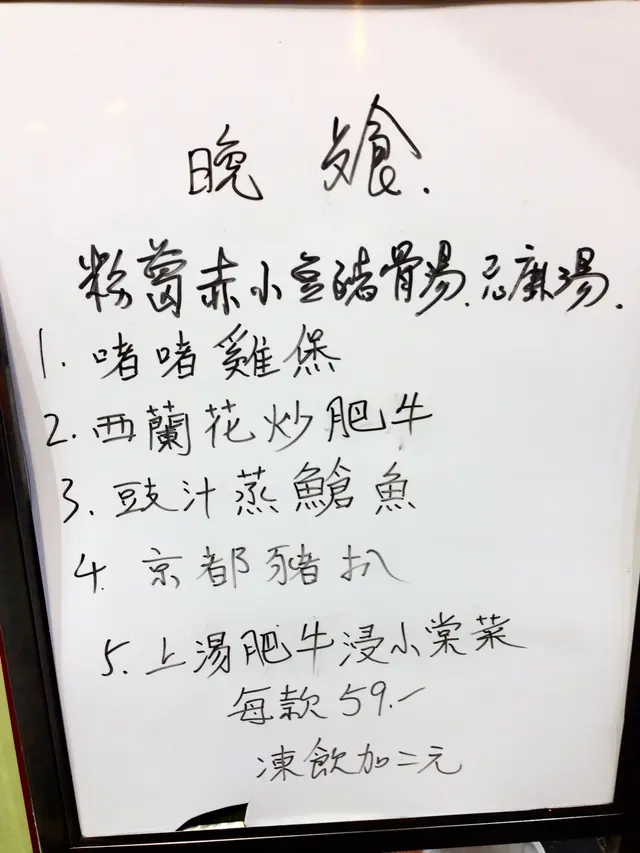 晚飡.
粉葛赤小豆豬骨湯.忌廉湯.
1. 啫啫雞煲
2. 西蘭花炒肥牛
3. 豉汁蒸鱠魚
4. 京都豬扒
5. 上湯肥牛浸小棠菜
每款59.-
凍飲加二元